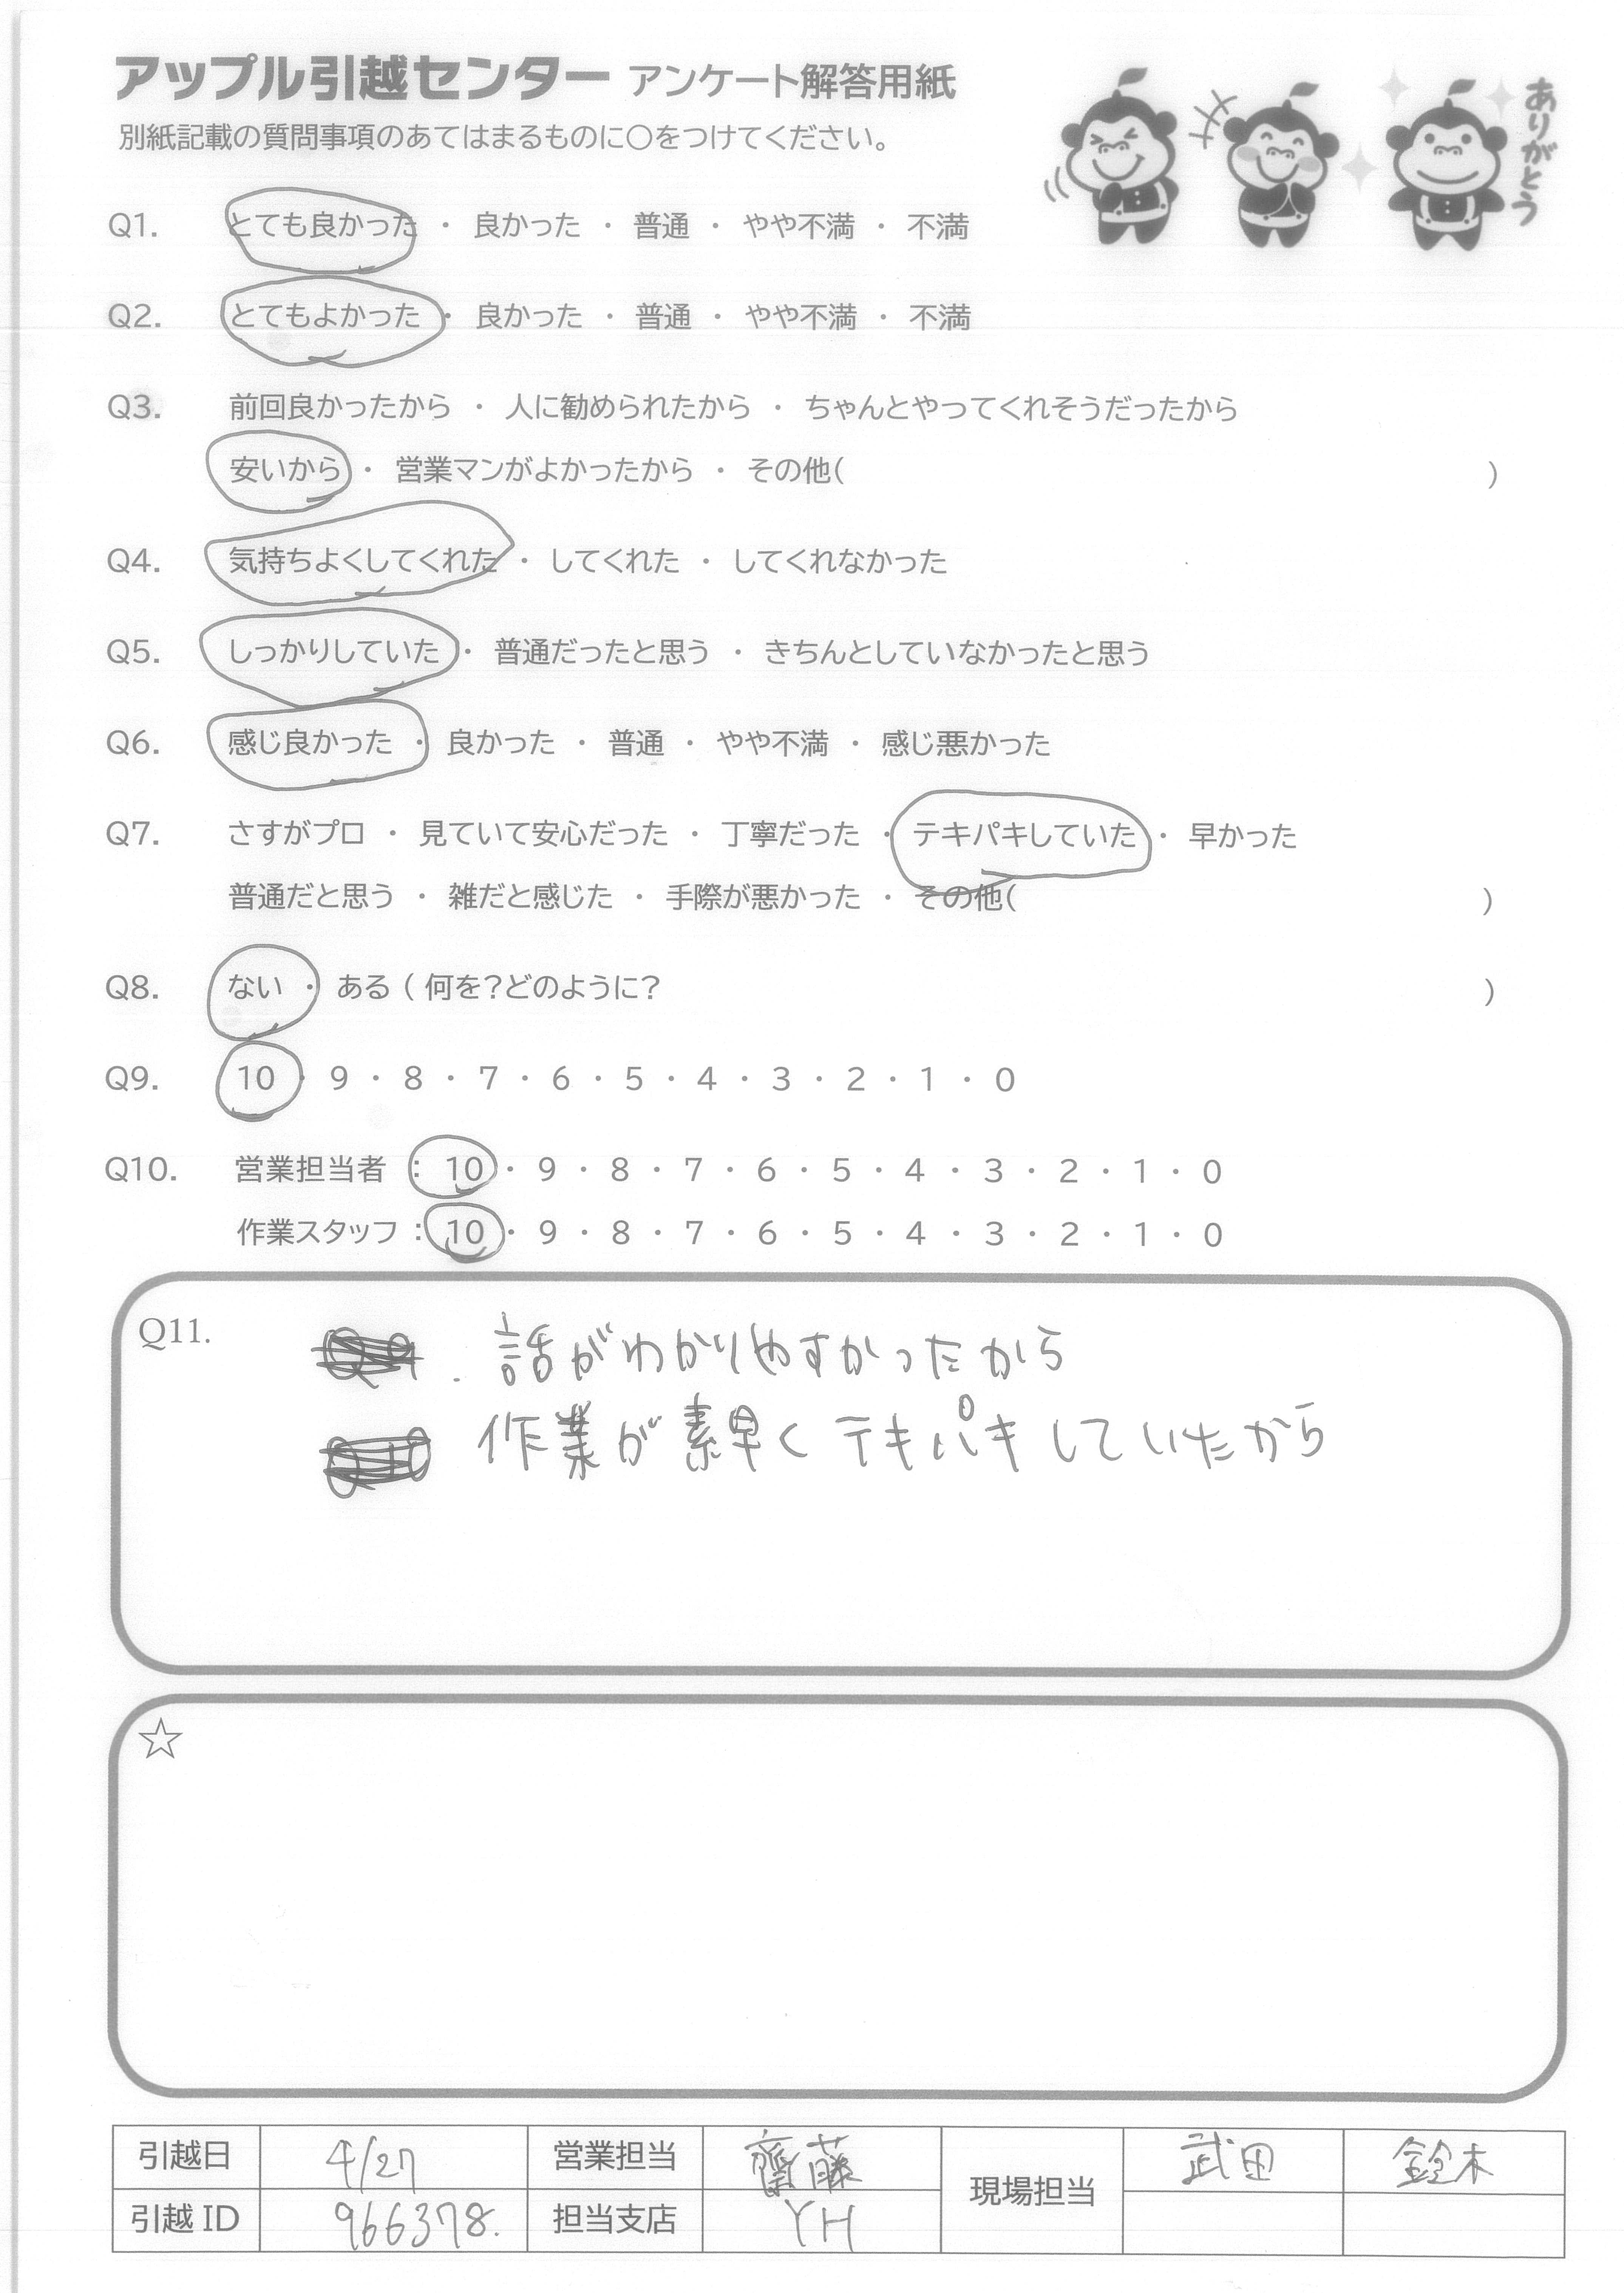 アップル引越センター アンケート解答用紙
別紙記載の質問事項のあてはまるものに○をつけてください。
ありがとう
Q1. とても良かった ・ 良かった ・ 普通 ・ やや不満 ・ 不満
Q2. とてもよかった ・ 良かった ・ 普通 ・ やや不満 ・ 不満
Q3. 前回良かったから ・ 人に勧められたから ・ ちゃんとやってくれそうだったから
安いから ・ 営業マンがよかったから ・ その他( )
Q4. 気持ちよくしてくれた ・ してくれた ・ してくれなかった
Q5. しっかりしていた ・ 普通だったと思う ・ きちんとしていなかったと思う
Q6. 感じ良かった ・ 良かった ・ 普通 ・ やや不満 ・ 感じ悪かった
Q7. さすがプロ ・ 見ていて安心だった ・ 丁寧だった ・ テキパキしていた ・ 早かった
普通だと思う ・ 雑だと感じた ・ 手際が悪かった ・ その他( )
Q8. ない ・ ある ( 何を?どのように? )
Q9. 10 ・ 9 ・ 8 ・ 7 ・ 6 ・ 5 ・ 4 ・ 3 ・ 2 ・ 1 ・ 0
Q10. 営業担当者 : 10 ・ 9 ・ 8 ・ 7 ・ 6 ・ 5 ・ 4 ・ 3 ・ 2 ・ 1 ・ 0
作業スタッフ : 10 ・ 9 ・ 8 ・ 7 ・ 6 ・ 5 ・ 4 ・ 3 ・ 2 ・ 1 ・ 0
Q11. 話がわかりやすかったから
作業が素早くテキパキしていたから
☆
引越日 4/27 営業担当 齋藤 現場担当 武田 鈴木
引越 ID 966378. 担当支店 YH